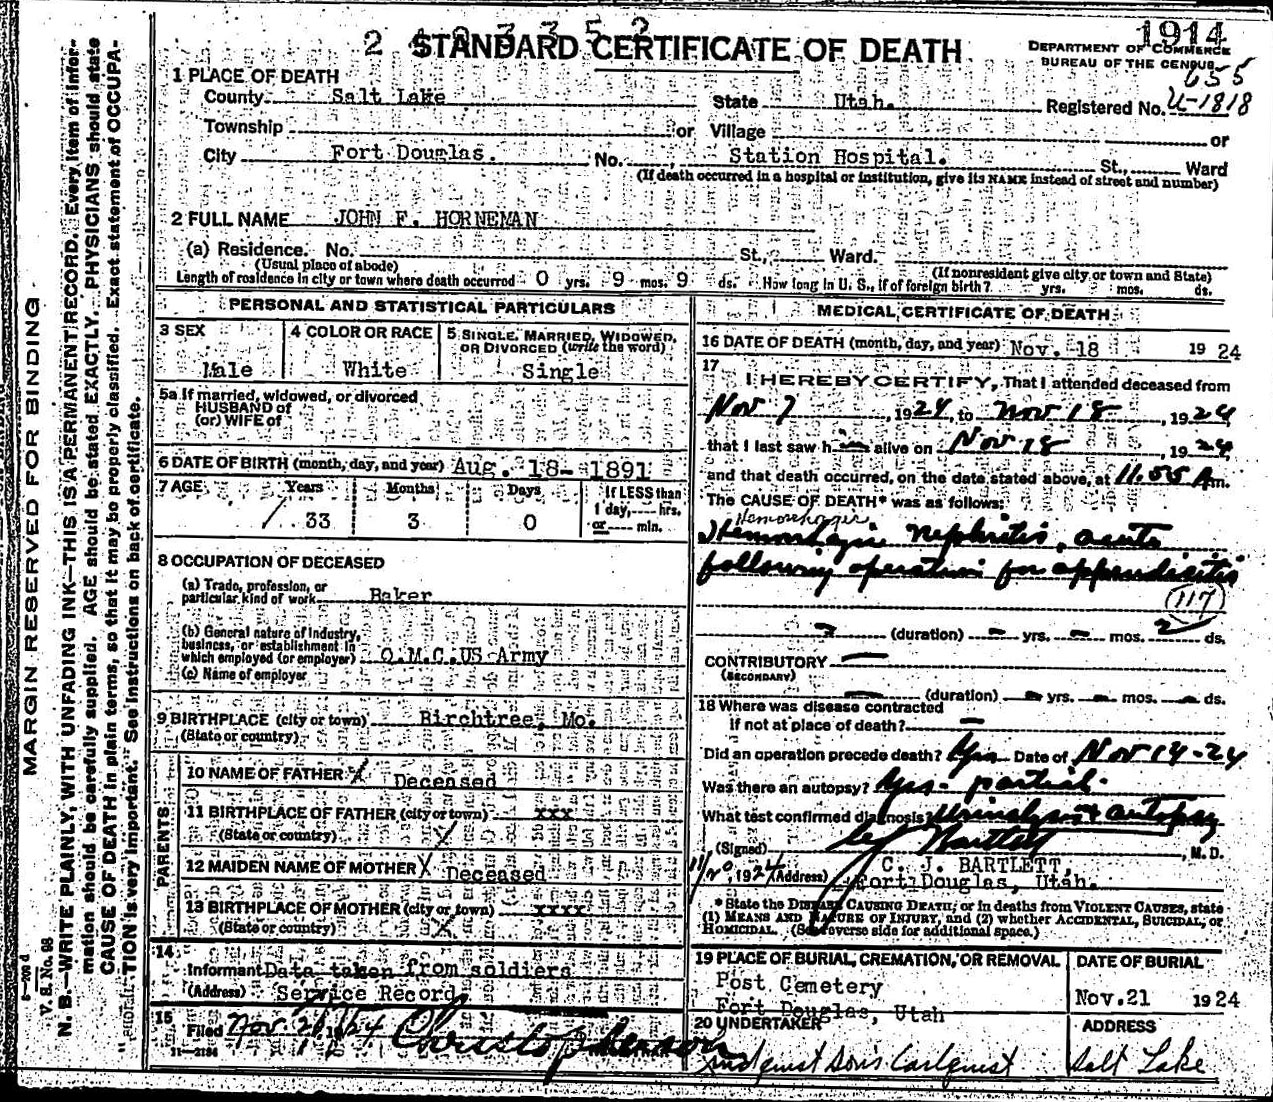 2 4 0 3 3 5 2
1914
STANDARD CERTIFICATE OF DEATH
DEPARTMENT OF COMMERCE
BUREAU OF THE CENSUS
655
1 PLACE OF DEATH
County Salt Lake State Utah. Registered No. U-1818
Township or Village or
City Fort Douglas. No. , Station Hospital. St., Ward
(If death occurred in a hospital or institution, give its NAME instead of street and number)
2 FULL NAME JOHN F. HORNEMAN
(a) Residence. No. St., Ward.
(Usual place of abode) (If nonresident give city or town and State)
Length of residence in city or town where death occurred 0 yrs. 9 mos. 9 ds. How long in U. S., if of foreign birth? yrs. mos. ds.
PERSONAL AND STATISTICAL PARTICULARS
3 SEX
Male
4 COLOR OR RACE
White
5 SINGLE, MARRIED, WIDOWED,
OR DIVORCED (write the word)
Single
5a If married, widowed, or divorced
HUSBAND of
(or) WIFE of
6 DATE OF BIRTH (month, day, and year) Aug. 18- 1891
7 AGE Years Months Days If LESS than
1 day, hrs.
33 3 0 or min.
8 OCCUPATION OF DECEASED
(a) Trade, profession, or
particular kind of work Baker
(b) General nature of industry,
business, or establishment in
which employed (or employer) Q.M.C.US Army
(c) Name of employer
9 BIRTHPLACE (city or town) Birchtree, Mo.
(State or country)
PARENTS
10 NAME OF FATHER X Deceased
11 BIRTHPLACE OF FATHER (city or town) xxx
(State or country)
12 MAIDEN NAME OF MOTHER X Deceased
13 BIRTHPLACE OF MOTHER (city or town) xxxx
(State or country) X
14
Informant Data taken from soldiers
(Address) Service Record
15
Filed Nov. 1924 Christopherson
11-2184
MEDICAL CERTIFICATE OF DEATH
16 DATE OF DEATH (month, day, and year) Nov. 18 19 24
17
I HEREBY CERTIFY, That I attended deceased from
Nov 7, 1924, to Nov 18, 1924
that I last saw him alive on Nov 18, 1924
and that death occurred, on the date stated above, at 11.55 A m.
The CAUSE OF DEATH* was as follows:
Hemorrhagic
Hemorrhagic nephritis, acute
following operation for appendicitis
117
(duration) - yrs. - mos. 2 ds.
CONTRIBUTORY
(SECONDARY)
(duration) - yrs. - mos. - ds.
18 Where was disease contracted
If not at place of death? -
Did an operation precede death? Yes Date of Nov 14-24
Was there an autopsy? Yes - partial.
What test confirmed diagnosis? Urinalysis & autopsy
(Signed) Bartlett, M. D.
C. J. BARTLETT,
11/20, 1924 (Address) Fort Douglas, Utah.
* State the DISEASE CAUSING DEATH, or in deaths from VIOLENT CAUSES, state
(1) MEANS AND NATURE OF INJURY, and (2) whether ACCIDENTAL, SUICIDAL, or
HOMICIDAL. (See reverse side for additional space.)
19 PLACE OF BURIAL, CREMATION, OR REMOVAL
Post Cemetery
Fort Douglas, Utah
DATE OF BURIAL
Nov.21 19 24
20 UNDERTAKER
Lindquist Sons Carlquist
ADDRESS
Salt Lake
MARGIN RESERVED FOR BINDING
V. S. No. 98
N. B.—WRITE PLAINLY, WITH UNFADING INK—THIS IS A PERMANENT RECORD. Every item of infor-
mation should be carefully supplied. AGE should be stated EXACTLY. PHYSICIANS should state
CAUSE OF DEATH in plain terms, so that it may be properly classified. Exact statement of OCCUPA-
TION is very important. See instructions on back of certificate.